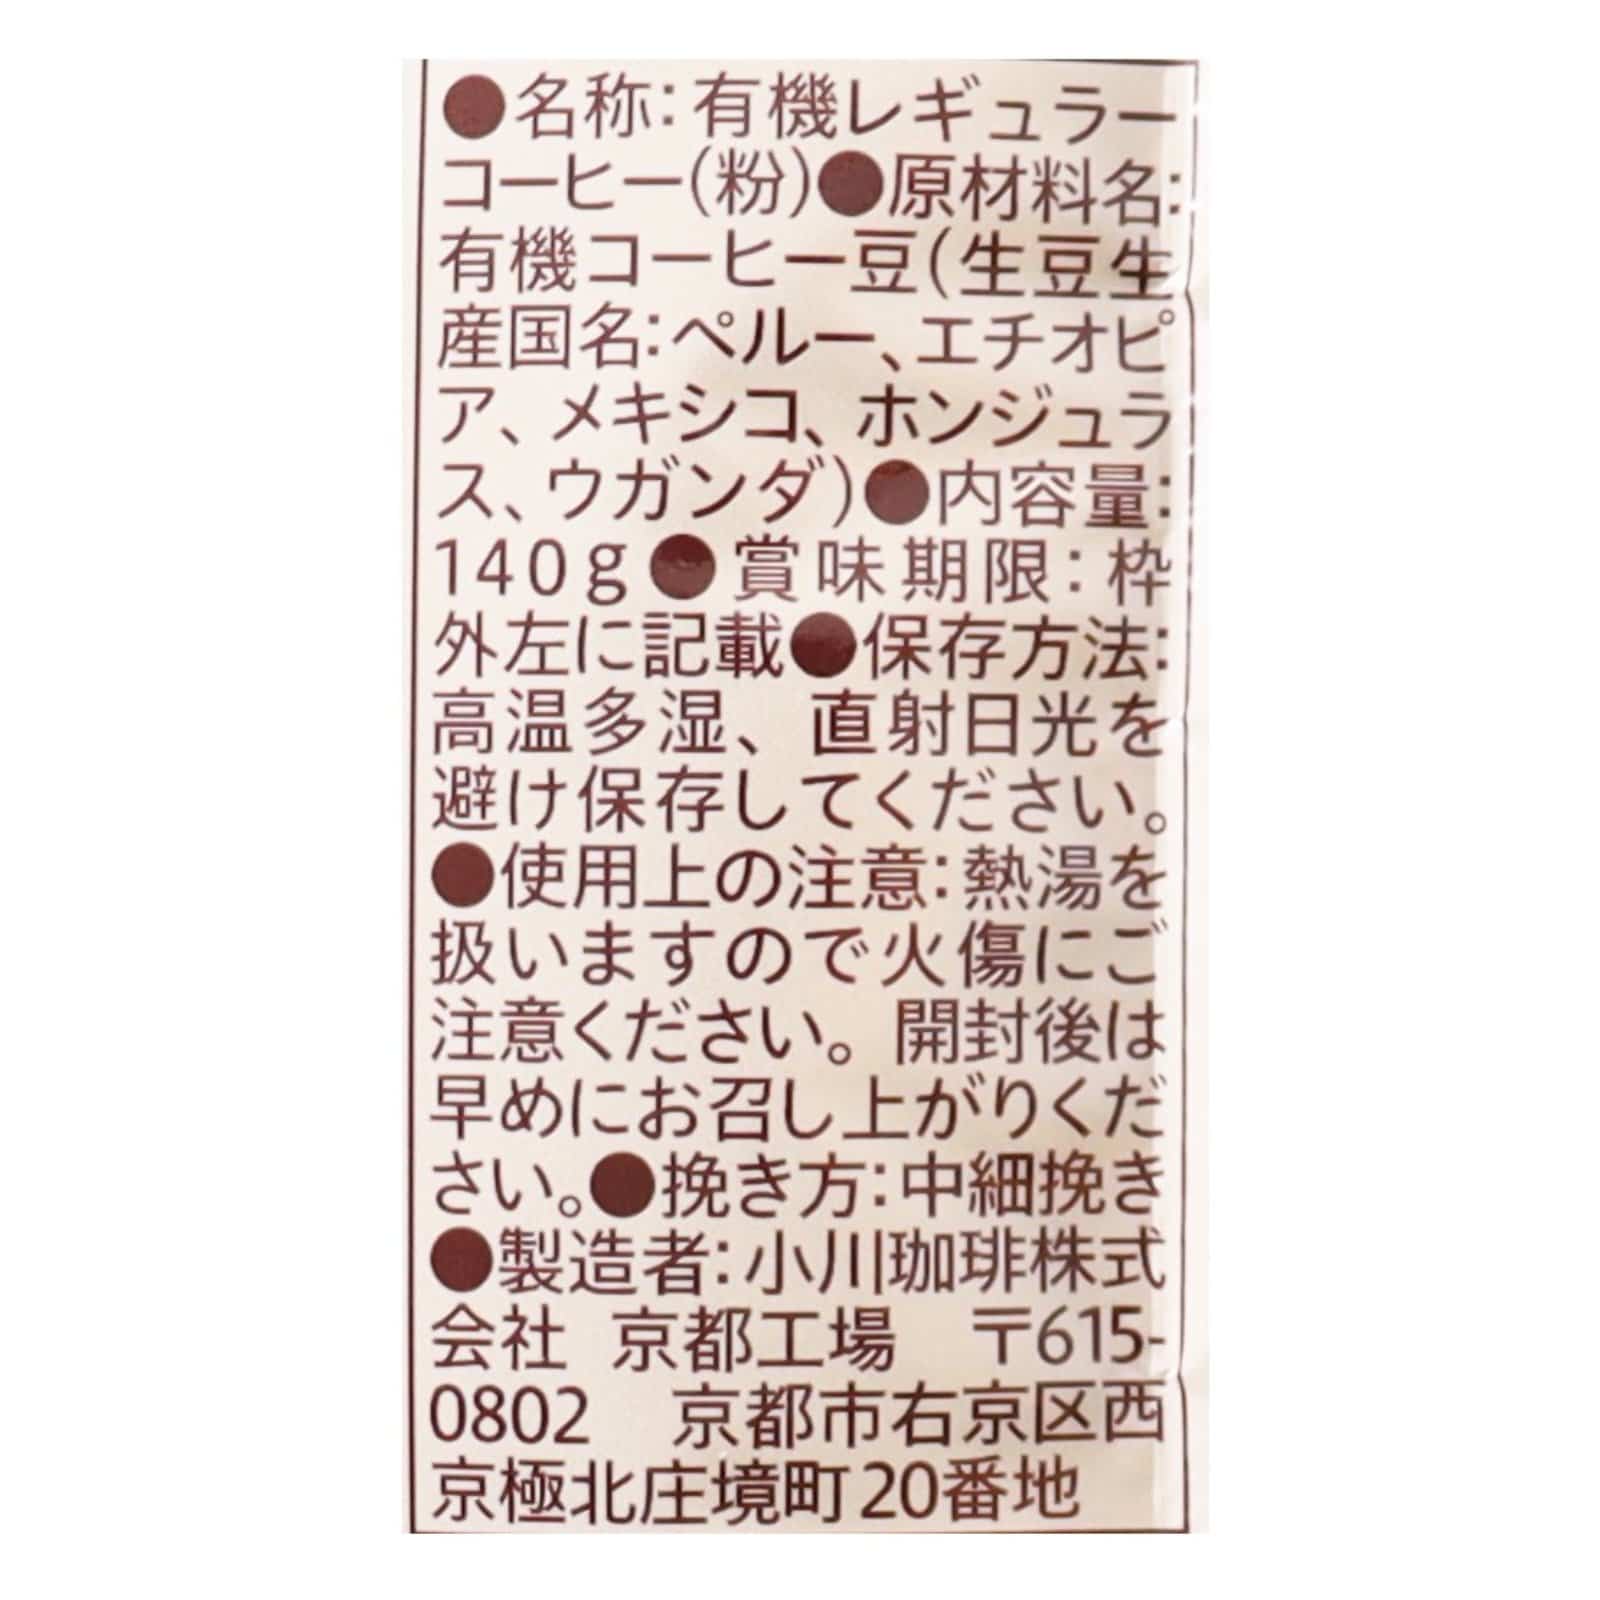 ●名称：有機レギュラー
コーヒー（粉）●原材料名：
有機コーヒー豆（生豆生
産国名：ペルー、エチオピ
ア、メキシコ、ホンジュラ
ス、ウガンダ）●内容量：
140g●賞味期限：枠
外左に記載●保存方法：
高温多湿、直射日光を
避け保存してください。
●使用上の注意：熱湯を
扱いますので火傷にご
注意ください。開封後は
早めにお召し上がりくだ
さい。●挽き方：中細挽き
●製造者：小川珈琲株式
会社 京都工場　〒615-
0802　京都市右京区西
京極北庄境町20番地